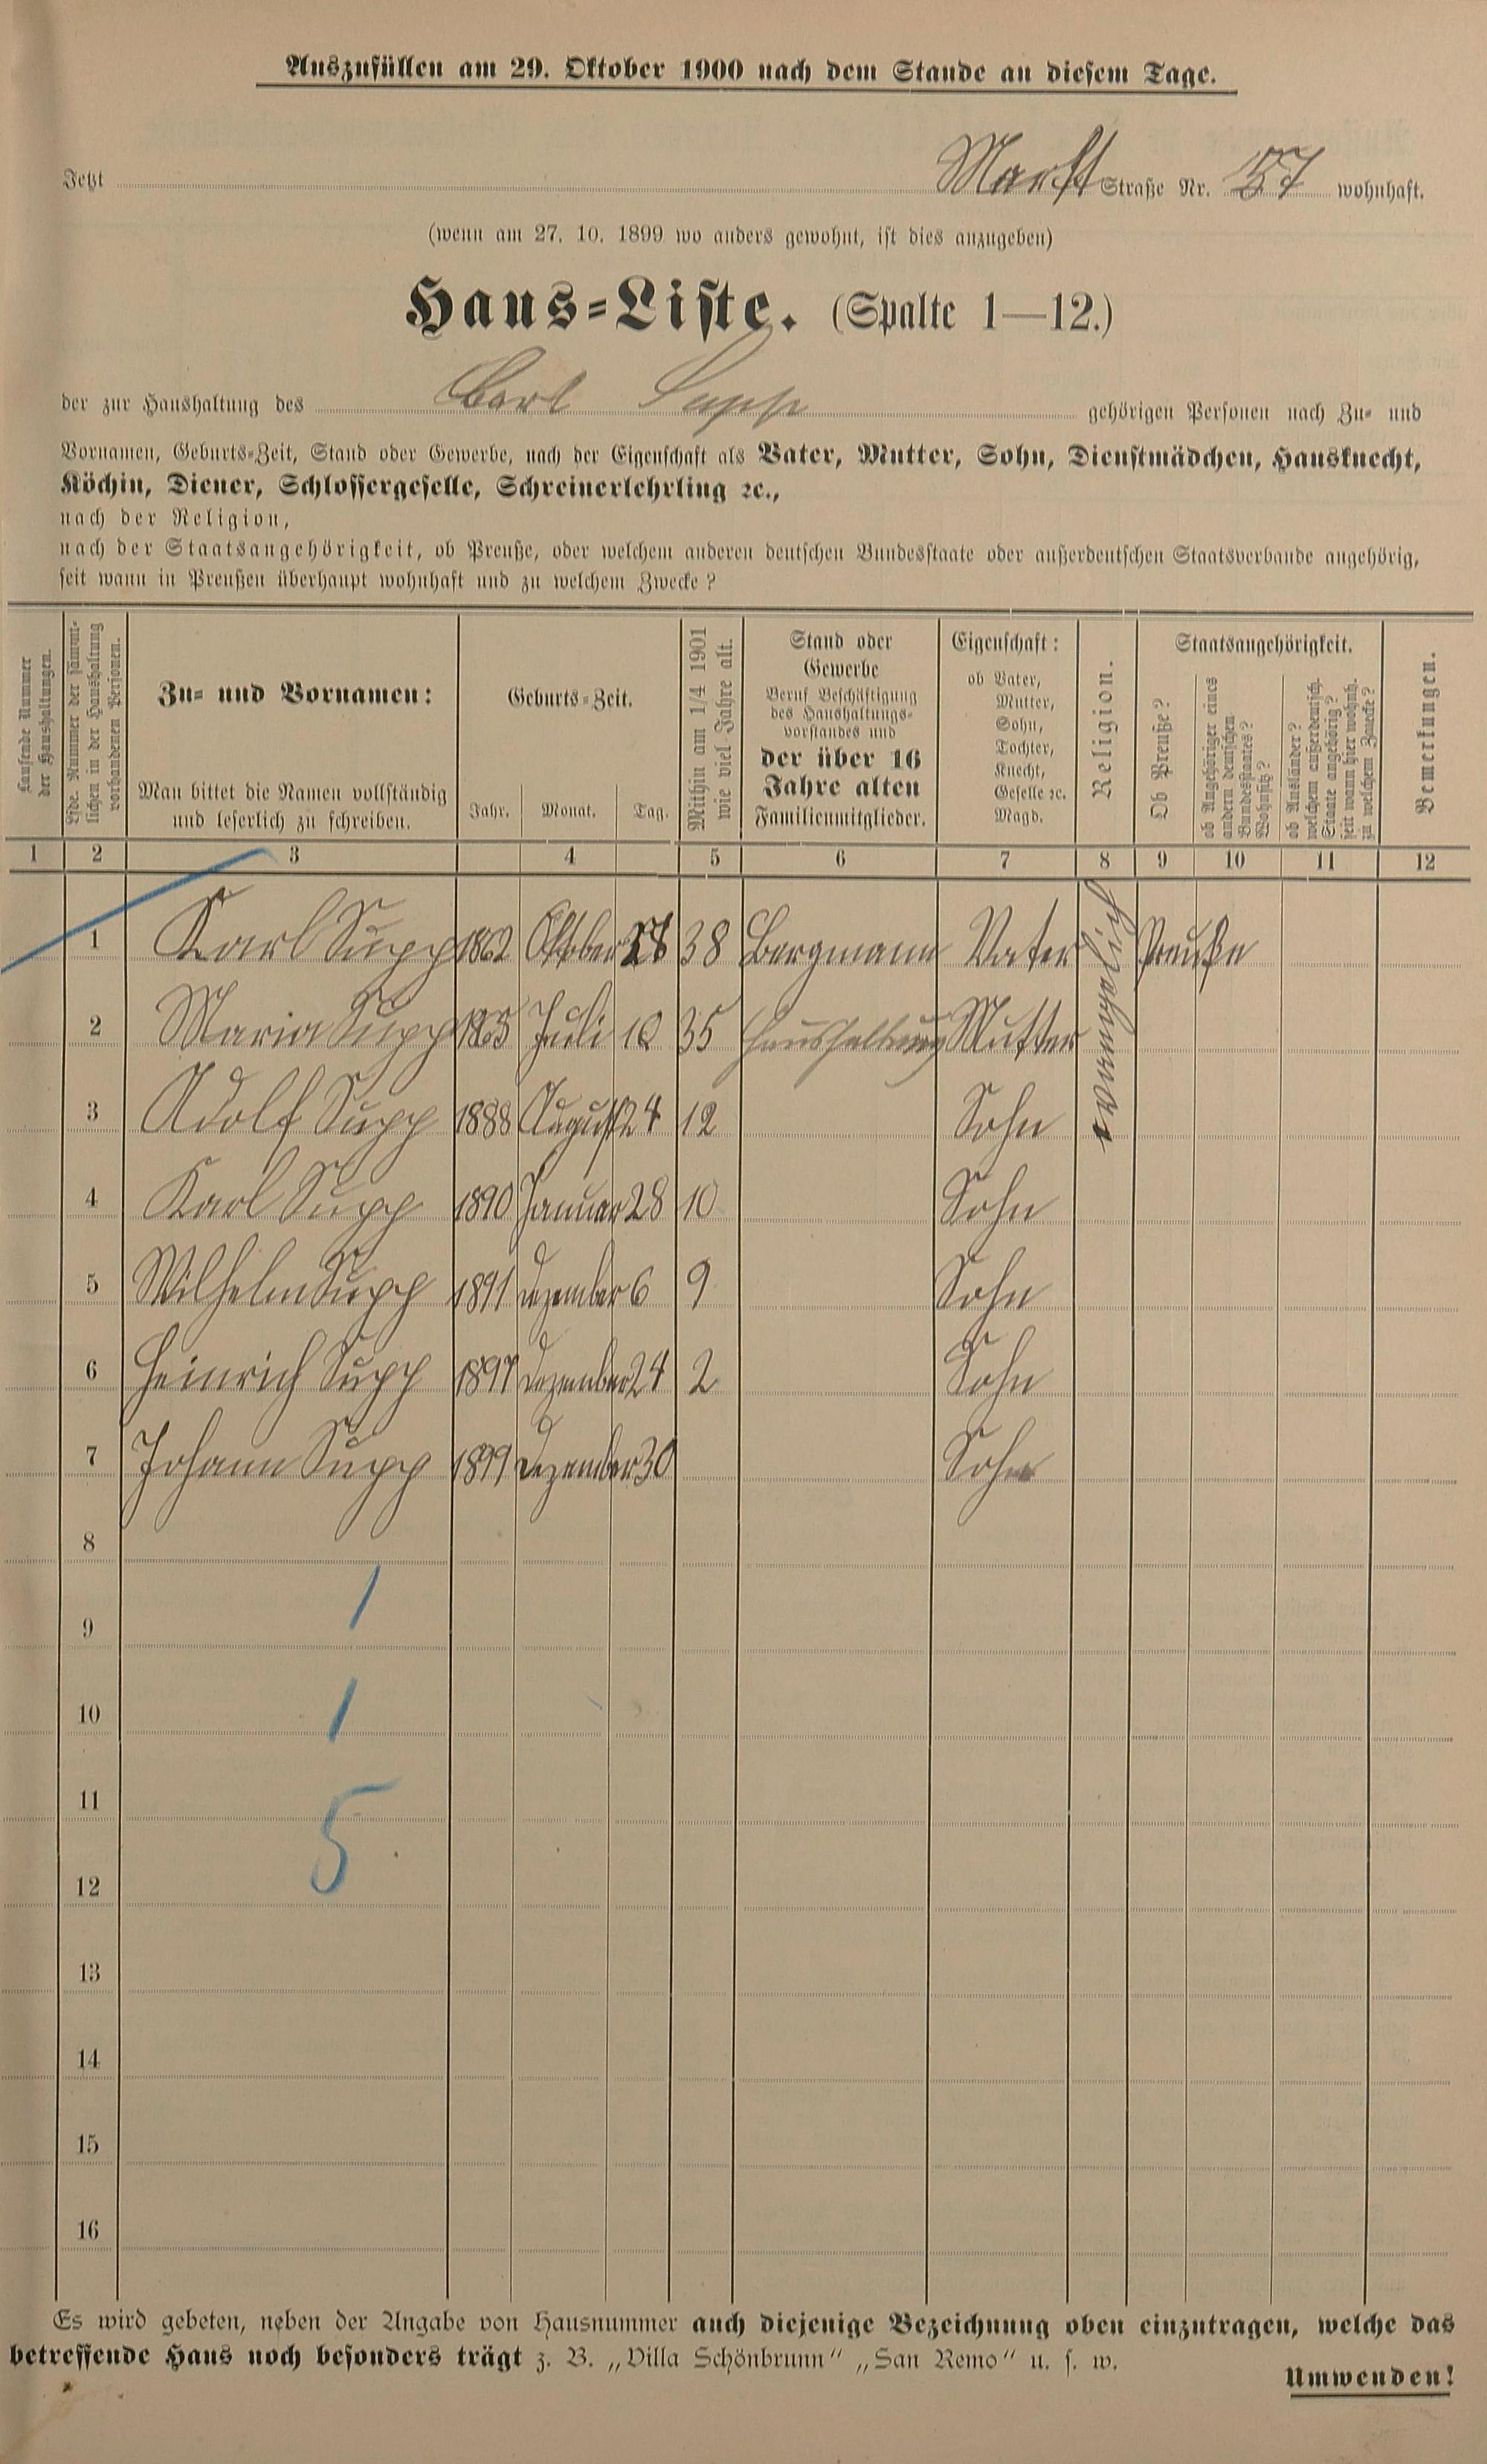 Auszufüllen am 29. Oktober 1900 nach dem Stande an diesem Tage.
Jetzt Markt Straße Nr. 57 wohnhaft.
(wenn am 27. 10. 1899 wo anders gewohnt, ist dies anzugeben)
Haus-Liste. (Spalte 1—12.)
der zur Haushaltung des Carl Supp gehörigen Personen nach Zu- und
Vornamen, Geburts-Zeit, Stand oder Gewerbe, nach der Eigenschaft als Vater, Mutter, Sohn, Dienstmädchen, Hausknecht,
Köchin, Diener, Schlossergeselle, Schreinerlehrling ꝛc.,
nach der Religion,
nach der Staatsangehörigkeit, ob Preuße, oder welchem anderen deutschen Bundesstaate oder außerdeutschen Staatsverbande angehörig,
seit wann in Preußen überhaupt wohnhaft und zu welchem Zwecke?
Laufende Nummer
der Haushaltungen.
Lfde. Nummer der sämmt-
lichen in der Haushaltung
vorhandenen Personen.
Zu- und Vornamen:
Man bittet die Namen vollständig
und leserlich zu schreiben.
Geburts-Zeit.
Jahr. Monat. Tag.
Mithin am 1/4 1901
wie viel Jahre alt.
Stand oder
Gewerbe
Beruf Beschäftigung
des Haushaltungs-
vorstandes und
der über 16
Jahre alten
Familienmitglieder.
Eigenschaft:
ob Vater,
Mutter,
Sohn,
Tochter,
Knecht,
Geselle ꝛc.
Magd.
Religion.
Staatsangehörigkeit.
Ob Preuße?
ob Angehöriger eines
andern deutschen
Bundesstaates?
Wohnsitz?
ob Ausländer?
welchem außerdeutsch.
Staate angehörig?
seit wann hier wohnh.
zu welchem Zwecke?
Bemerkungen.
1 2 3 4 5 6 7 8 9 10 11 12
1 Karl Supp 1862 Oktober 28 38 Bergmann Vater Preuße
2 Maria Supp 1865 Juli 10 35 Haushaltung Mutter
3 Adolf Supp 1888 August 24 12 Sohn
4 Karl Supp 1890 Januar 28 10 Sohn
5 Wilhelm Supp 1891 Dezember 6 9 Sohn
6 Heinrich Supp 1897 Dezember 24 2 Sohn
7 Johann Supp 1899 Dezember 30 Sohn
8
1
9
10
1
11
5
12
13
14
15
16
Es wird gebeten, neben der Angabe von Hausnummer auch diejenige Bezeichnung oben einzutragen, welche das
betreffende Haus noch besonders trägt z. B. „Villa Schönbrunn“ „San Remo“ u. s. w.
Umwenden!